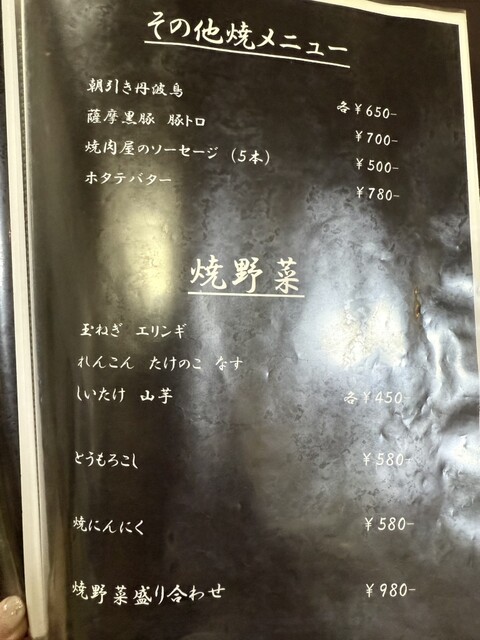 その他焼メニュー
朝引き丹波鳥 各¥650-
薩摩黒豚 豚トロ ¥700-
焼肉屋のソーセージ (5本) ¥500-
ホタテバター ¥780-
焼野菜
玉ねぎ エリンギ
れんこん たけのこ なす
しいたけ 山芋 各¥450-
とうもろこし ¥580-
焼にんにく ¥580-
焼野菜盛り合わせ ¥980-